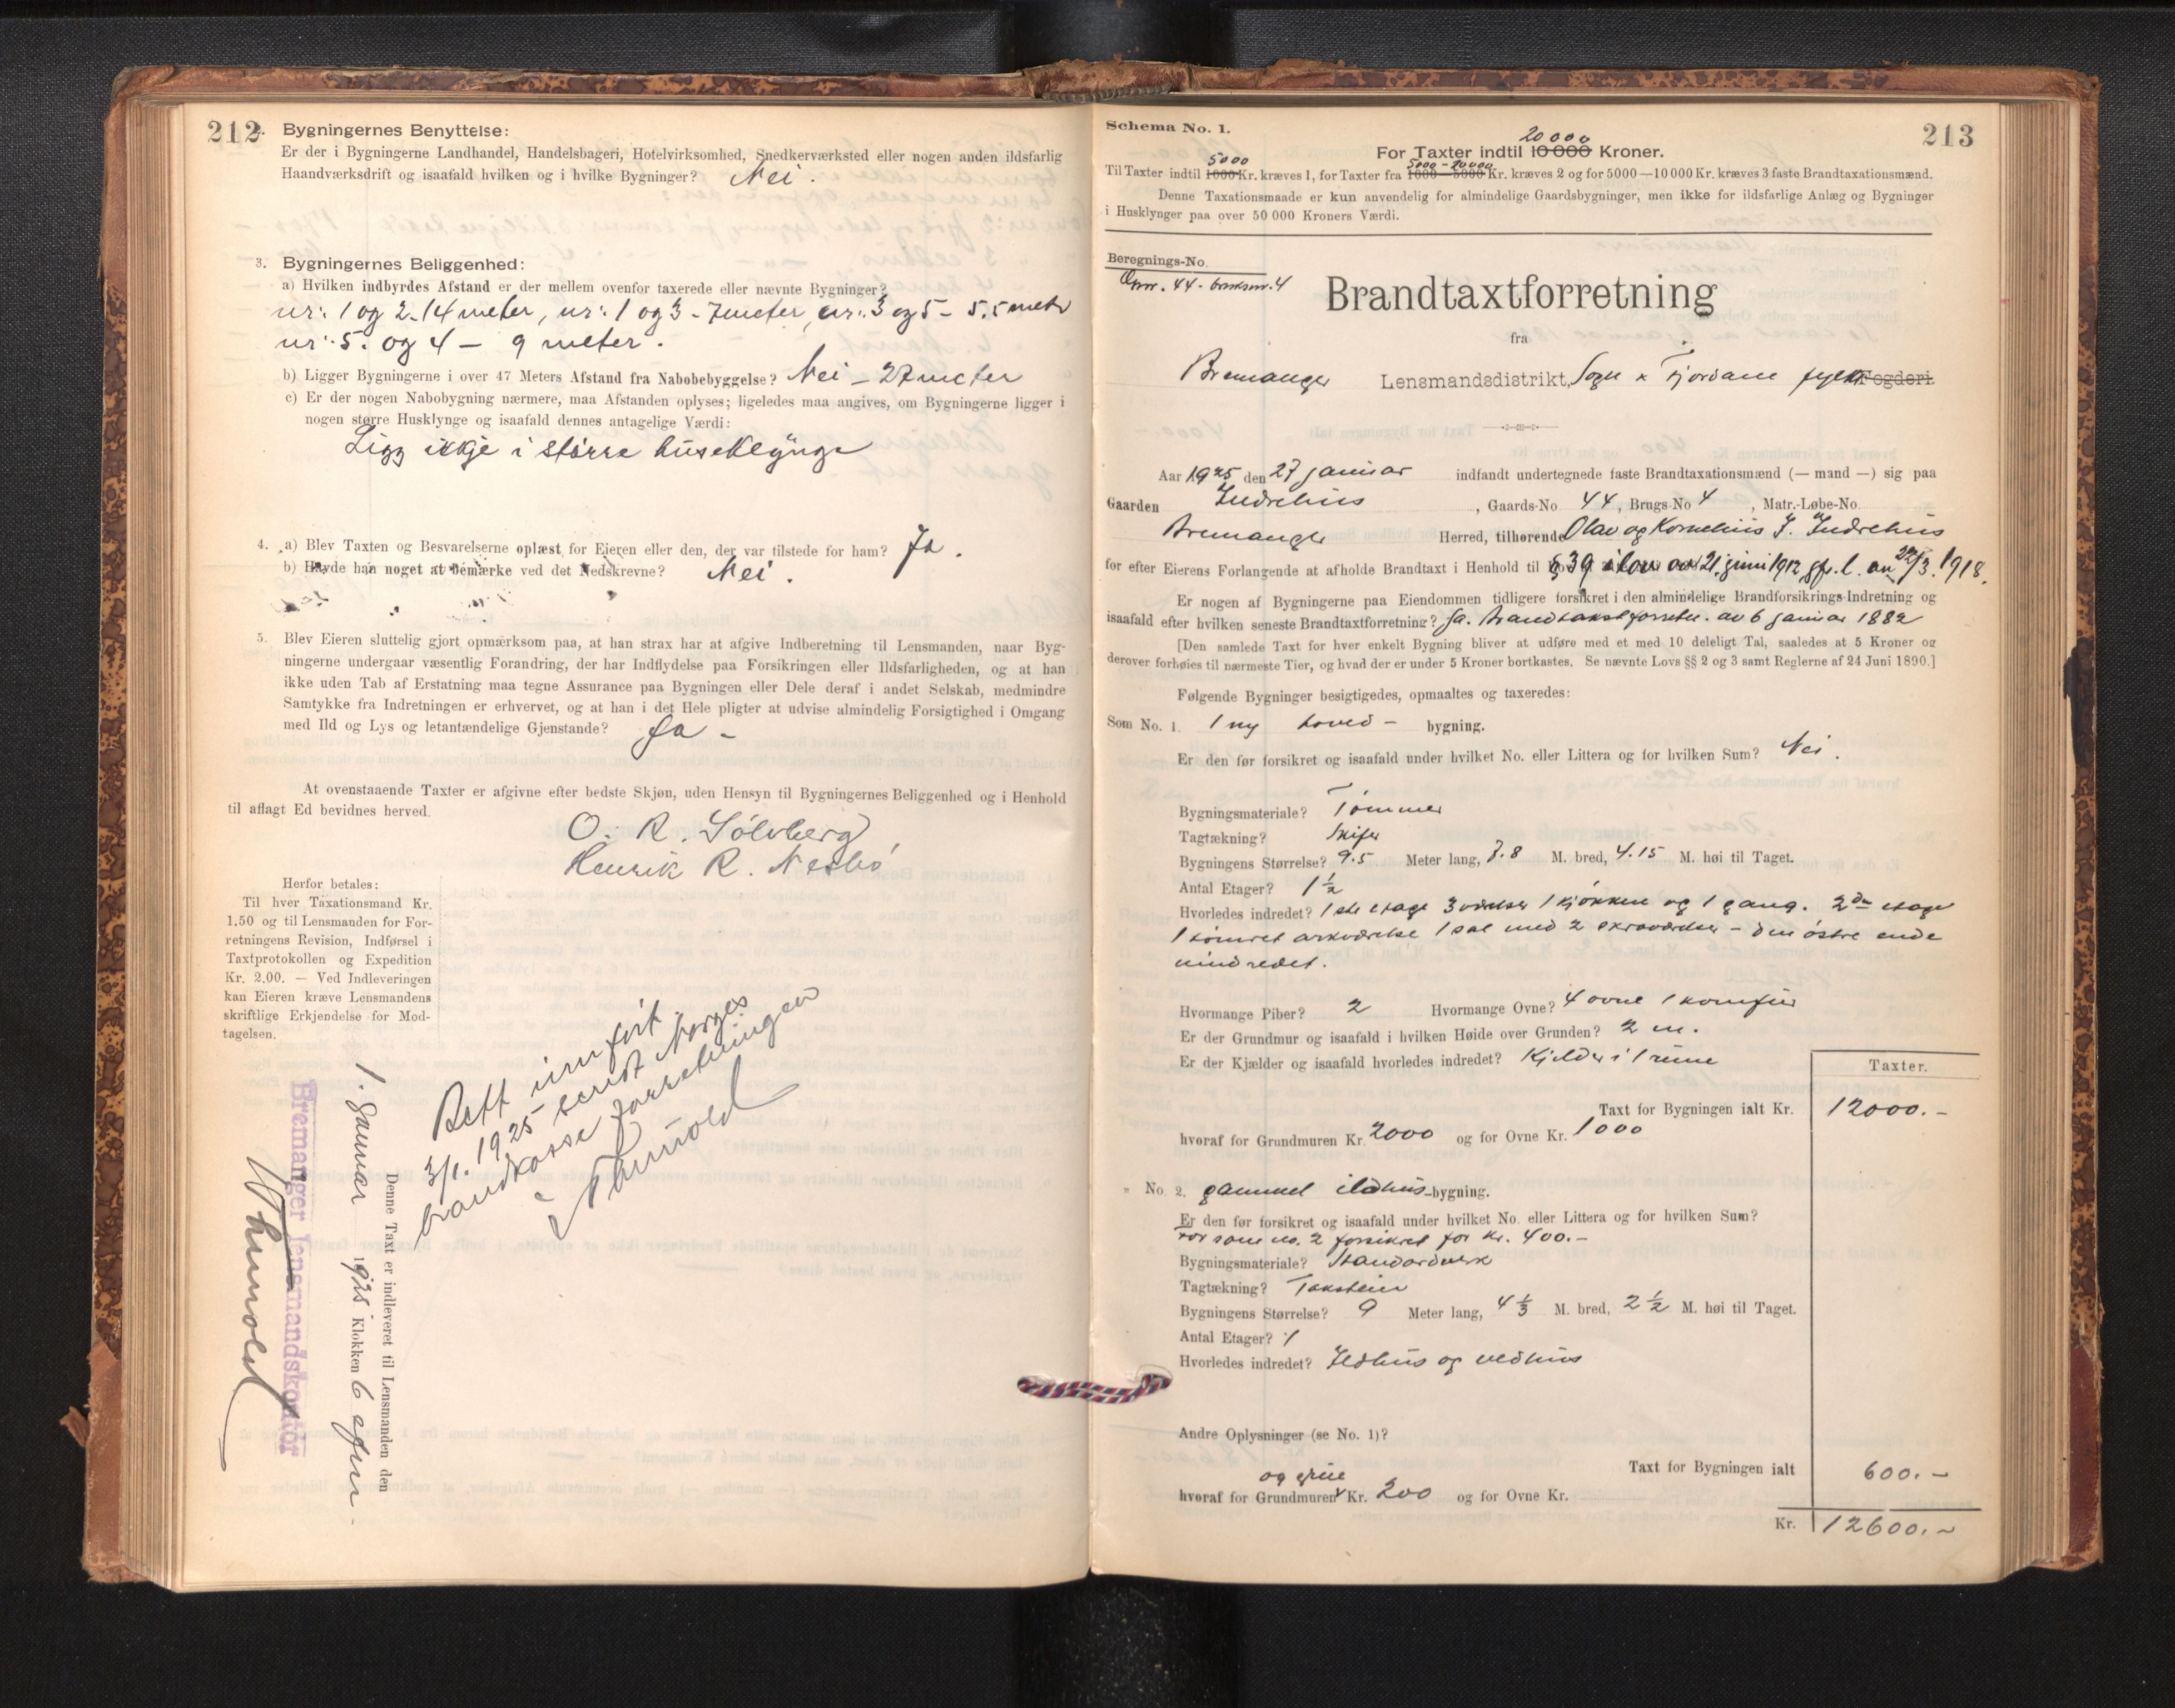 212
2. Bygningernes Benyttelse:
Er der i Bygningerne Landhandel, Handelsbageri, Hotelvirksomhed, Snedkerværksted eller nogen anden ildsfarlig
Haandværksdrift og isaafald hvilken og i hvilke Bygninger? Nei.
3. Bygningernes Beliggenhed:
a) Hvilken indbyrdes Afstand er der mellem ovenfor taxerede eller nævnte Bygninger?
nr: 1 og 2 - 14 meter, nr: 1 og 3 - 7 meter, nr: 3 og 5 - 5,5 meter
nr: 5. og 4 - 9 meter.
b) Ligger Bygningerne i over 47 Meters Afstand fra Nabobebyggelse? Nei - 27 meter
c) Er der nogen Nabobygning nærmere, maa Afstanden oplyses; ligeledes maa angives, om Bygningerne ligger i
nogen større Husklynge og isaafald dennes antagelige Værdi:
Ligg ikkje i større huseklynge
4. a) Blev Taxten og Besvarelserne oplæst for Eieren eller den, der var tilstede for ham? Ja.
b) Havde han noget at bemærke ved det Nedskrevne? Nei.
5. Blev Eieren sluttelig gjort opmærksom paa, at han strax har at afgive Indberetning til Lensmanden, naar Byg-
ningerne undergaar væsentlig Forandring, der har Indflydelse paa Forsikringen eller Ildsfarligheden, og at han
ikke uden Tab af Erstatning maa tegne Assurance paa Bygningen eller Dele deraf i andet Selskab, medmindre
Samtykke fra Indretningen er erhvervet, og at han i det Hele pligter at udvise almindelig Forsigtighed i Omgang
med Ild og Lys og letantændelige Gjenstande? Ja -
At ovenstaaende Taxter er afgivne efter bedste Skjøn, uden Hensyn til Bygningernes Beliggenhed og i Henhold
til aflagt Ed bevidnes herved.
O. R. Sølvberg
Henrik R. Nesbø
Herfor betales:
Til hver Taxationsmand Kr.
1,50 og til Lensmanden for For-
retningens Revision, Indførsel i
Taxtprotokollen og Expedition
Kr. 2,00. — Ved Indleveringen
kan Eieren kræve Lensmandens
skriftlige Erkjendelse for Mod-
tagelsen.
Rett innført
3/1. 1925 sendt Norges
brandkasse forretningen
Denne Taxt er indleveret til Lensmanden den
1. januar 1925 Klokken 6 efm -
Bremanger lensmandskontor
213
Schema No. 1.
20 000
For Taxter indtil 10 000 Kroner.
5000 5000 - 20 000
Til Taxter indtil 1000 Kr. kræves 1, for Taxter fra 1000—5000 Kr. kræves 2 og for 5000—10 000 Kr. kræves 3 faste Brandtaxationsmænd.
Denne Taxationsmaade er kun anvendelig for almindelige Gaardsbygninger, men ikke for ildsfarlige Anlæg og Bygninger
i Husklynger paa over 50 000 Kroners Værdi.
Beregnings-No.
Gnr. 44 - bruksnr. 4
Brandtaxtforretning
fra
Bremanger Lensmandsdistrikt, Sogn & Fjordane fylke Fogderi.
Aar 1925 den 27 januar indfandt undertegnede faste Brandtaxationsmænd (— mand —) sig paa
Gaarden Indrehus, Gaards-No 44, Brugs-No 4, Matr.-Løbe-No.
Bremanger Herred, tilhørende Olav og Kornelius J. Indrehus
for efter Eierens Forlangende at afholde Brandtaxt i Henhold til § 39 i lov av 21. juni 1912, jfr. l. av 22/3. 1918.
Er nogen af Bygningerne paa Eiendommen tidligere forsikret i den almindelige Brandforsikrings-Indretning og
isaafald efter hvilken seneste Brandtaxtforretning? Ja. Brandtakstforretn. av 6 januar 1882
[Den samlede Taxt for hver enkelt Bygning bliver at udføre med et med 10 deleligt Tal, saaledes at 5 Kroner og
derover forhøies til nærmeste Tier, og hvad der er under 5 Kroner bortkastes. Se nævnte Lovs §§ 2 og 3 samt Reglerne af 24 Juni 1890.]
Følgende Bygninger besigtigedes, opmaaltes og taxeredes:
Som No. 1. 1 ny hoved - bygning.
Er den før forsikret og isaafald under hvilket No. eller Littera og for hvilken Sum? Nei.
Bygningsmateriale? Tømmer
Tagtækning? Skifer
Bygningens Størrelse? 9.5 Meter lang, 7.8 M. bred, 4.15 M. høi til Taget.
Antal Etager? 1 1/2
Hvorledes indredet? 1ste etage 3 værelser 1 kjøkken og 1 gang. 2den etage
1 tømret arkværelse 1 sal med 2 skraaværelser - den østre ende
uindredet.
Hvormange Piber? 2 Hvormange Ovne? 4 ovne 1 komfür
Er der Grundmur og isaafald i hvilken Høide over Grunden? 2 m.
Er der Kjælder og isaafald hvorledes indredet? Kjelder i 1 rum
Taxter.
Taxt for Bygningen ialt Kr. 12000.-
hvoraf for Grundmuren Kr. 2000 og for Ovne Kr. 1000
" No. 2. gammel ildhus-bygning.
Er den før forsikret og isaafald under hvilket No. eller Littera og for hvilken Sum?
Før som no. 2 forsikret for kr. 400.-
Bygningsmateriale? Standardverk
Tagtækning? Takstein
Bygningens Størrelse? 9 Meter lang, 4 1/3 M. bred, 2 1/2 M. høi til Taget.
Antal Etager? 1
Hvorledes indredet? Ildhus og vedhus
Andre Oplysninger (se No. 1)?
Taxt for Bygningen ialt 600.-
og grue
hvoraf for Grundmuren Kr. 200 og for Ovne Kr.
Kr. 12600.-